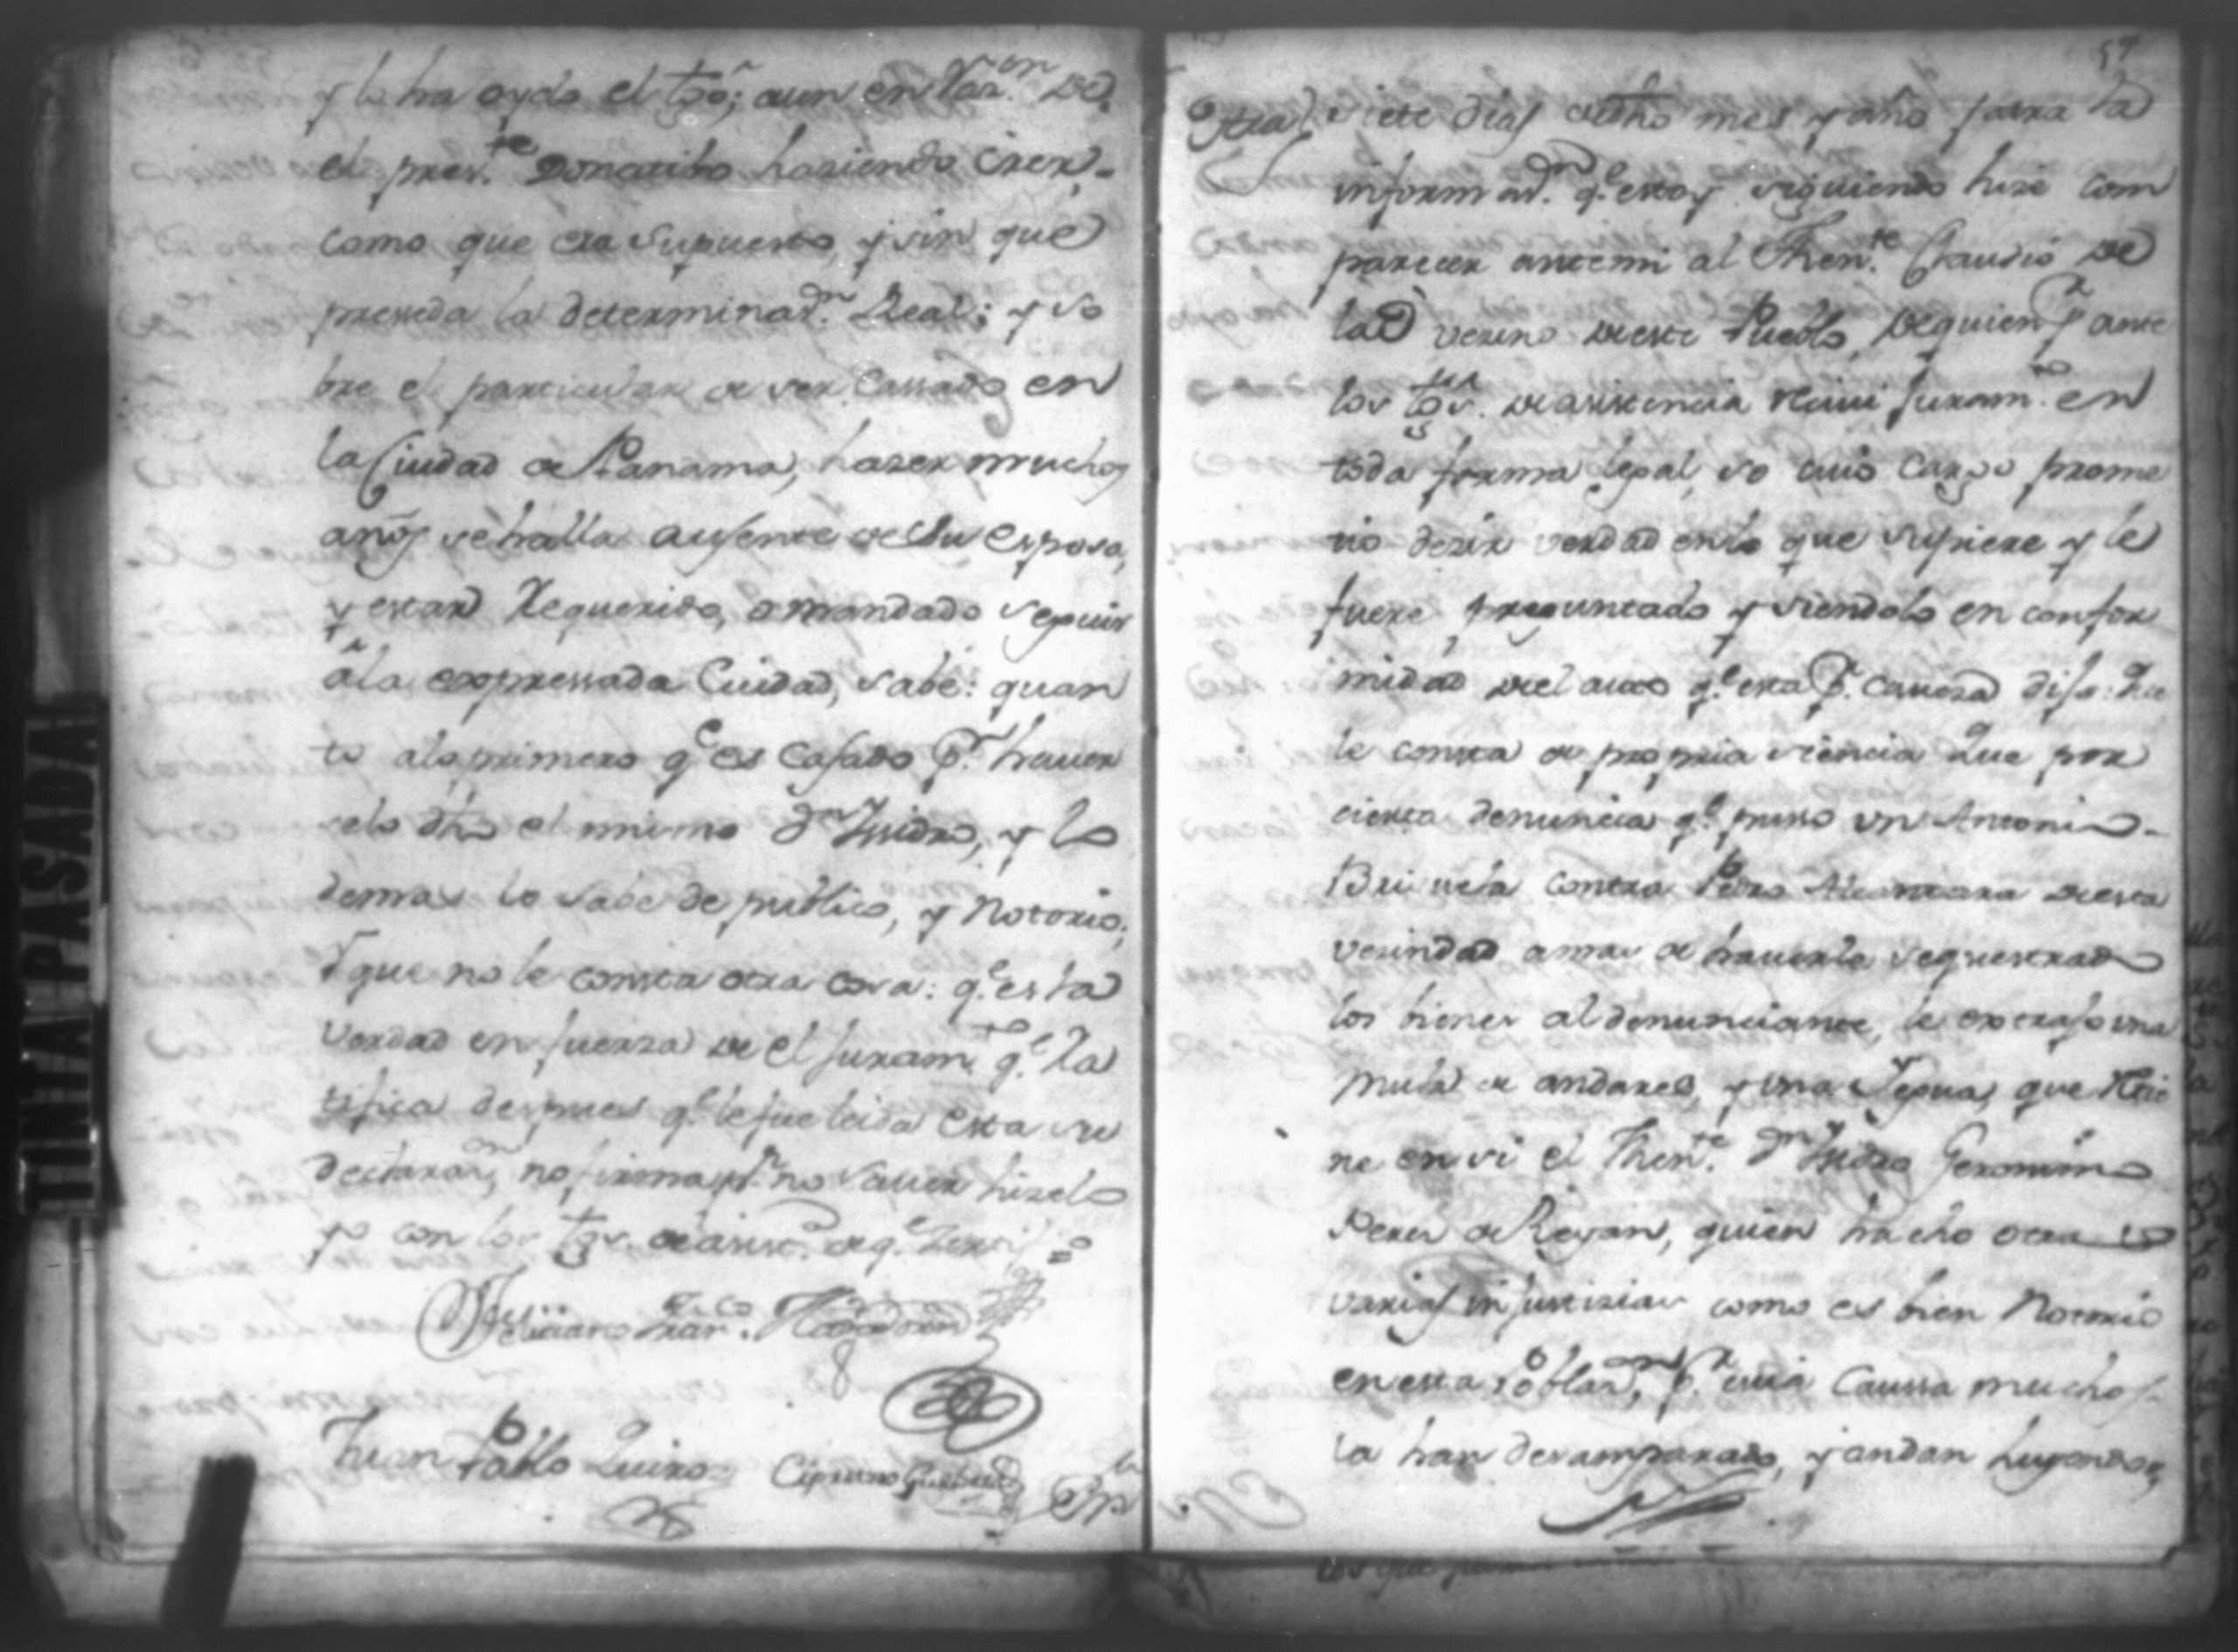 y lo ha oydo el tgo; aun en raz.on de
el pres.te Donatibo haziendo creer,
como que era supuesto, y sin que
preceda la determinaz.n Real; y so
bre el particular de ser Cassado en
la Ciudad de Panama, hazer muchos
años se halla ausente de su esposa,
y estar Requerido, o mandado seguir
â la expressada Ciudad, sabe: quan
to alo primero q.e es Casado p.r hauer
selo dho el mismo d.n Ysidro, y lo
demas lo sabe de publico, y Notorio;
y que no le consta otra cosa: q.e es la
verdad en fuerza de el juram.to q.e Ra
tifica despues q.e le fue leida esta su
declaraz.n, no firma p.r no sauer hizelo
yo con los tgs. de asist.a de q.e Zertif.o =
Feliciano Fran.co
Juan Pablo Quiros Cipriano
En
57
Otra
siete dias de dho mes y año para la
informaz.n q.e estoy siguiendo hize com
parecer ante mi al Then.te Claudio de
vezino de este Pueblo, de quien p.r ante
los tgs. de asistencia reciui juram.to en
toda forma legal, so cuio cargo prome
tio dezir verdad en lo que supiere y le
fuere preguntado y siendolo en confor
midad del auto q.e esta p.r caueza dijo: Que
le consta de propria ciencia Que por
cierta denuncia q.e puso un Antonio
contra Pedro Alcantara de esta
vezindad a mas de hauerle sequestrado
los bienes al denunciante, le extrajo una
Mula de andares, y una Yegua, que Retie
ne en si el Then.te d.n Ysidro Geronimo
Perez de quien ha echo otras
varias injustizias como es bien Notorio
en esta Poblaz.n, p.r cuia Caussa muchos
la han desamparado, y andan huyendo,
los que
TINTA PASADA